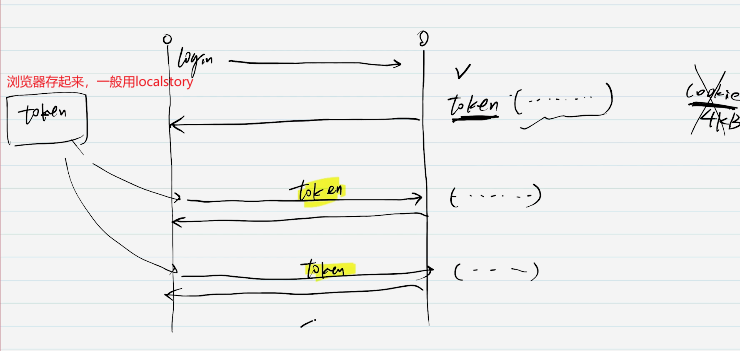 login
浏览器存起来，一般用localstory
token
token (········)
cookie
4KB
token
(······)
token
(· · ·)